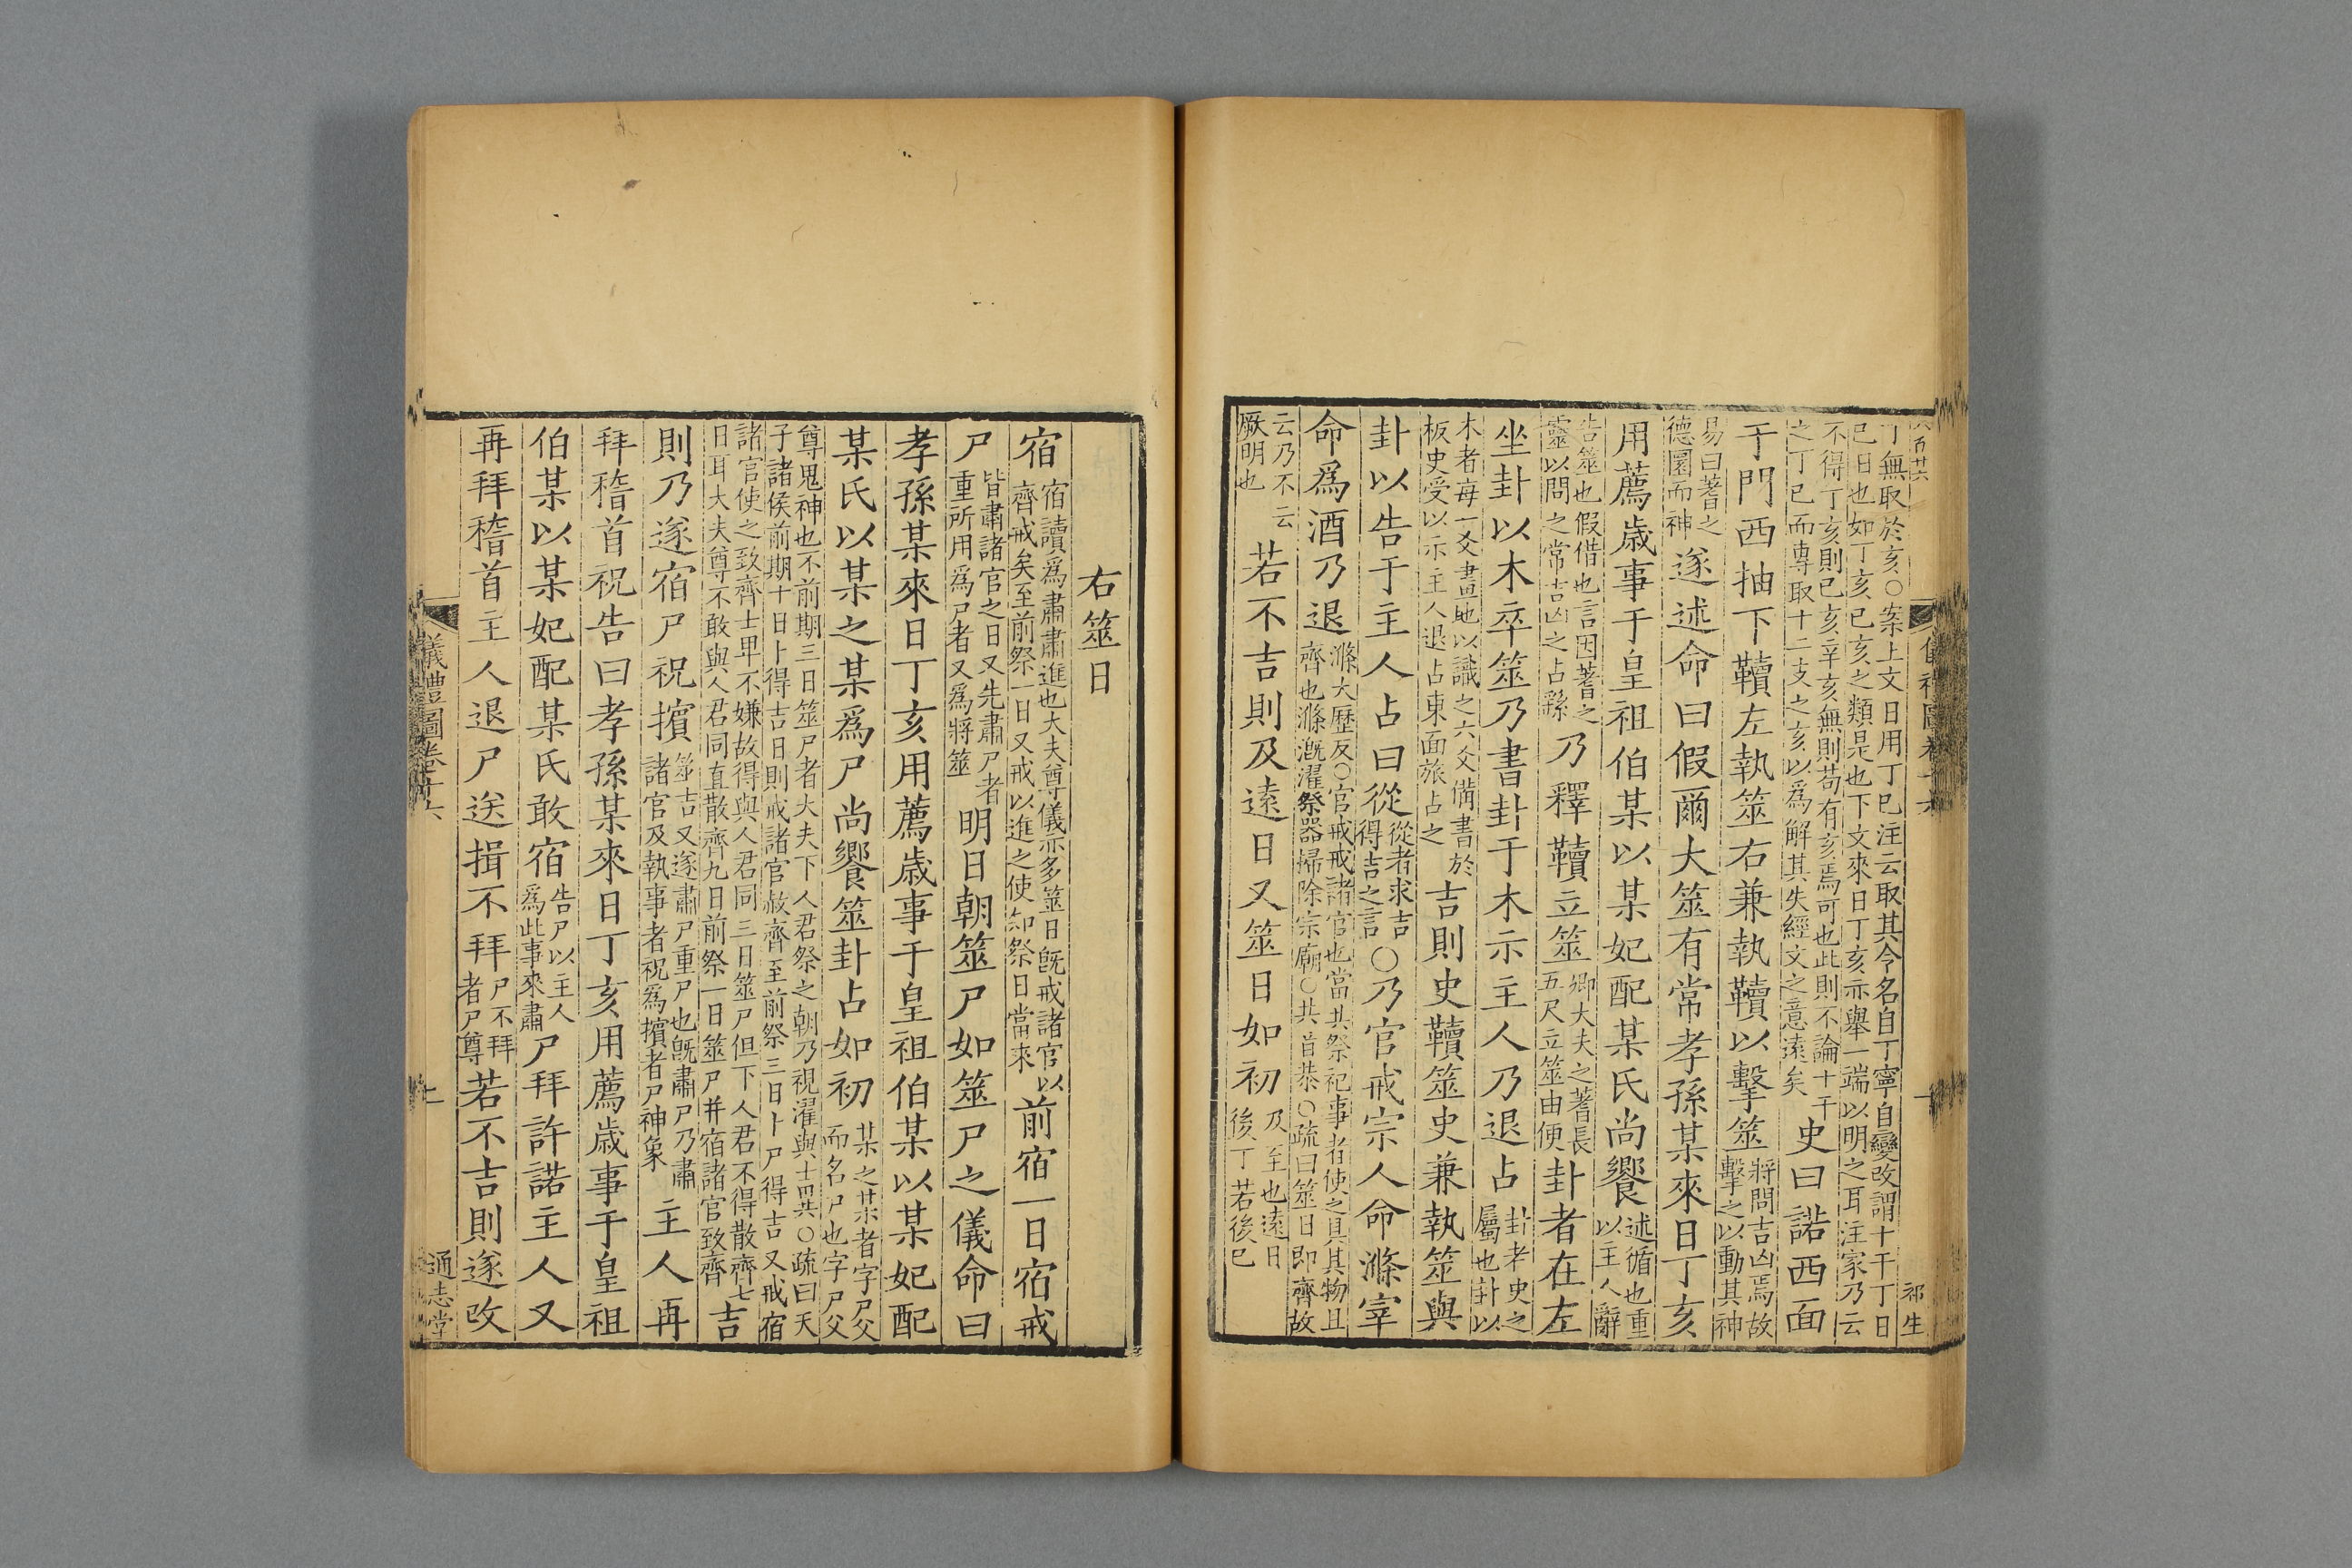 儀禮圖卷十六
十
祁生
丁無取於亥○案上文日用丁巳注云取其令名自丁寧自變改謂十干丁日
巳日也如丁亥巳亥之類是也下文來日丁亥亦舉一端以明之耳注家乃云
不得丁亥則巳亥辛亥無則苟有亥焉可也此則不論十干
之丁巳而專取十二支之亥以爲解其失經文之意遠矣
史曰諾西面
于門西抽下韇左執筮右兼執韇以擊筮將問吉凶焉故擊之以動其神
易曰蓍之德圓而神遂述命曰假爾大筮有常孝孫某來日丁亥
用薦歲事于皇祖伯某以某妃配某氏尚饗述循也重以主人辭
告筮也假借也言因蓍之靈以問之常吉凶之占繇乃釋韇立筮卿大夫之蓍長五尺立筮由便卦者在左
坐卦以木卒筮乃書卦于木示主人乃退占卦者史之屬也卦以
木者每一爻畫地以識之六爻備書於板史受以示主人退占東面旅占之吉則史韇筮史兼執筮與
卦以告于主人占曰從從者求吉得吉之言○乃官戒宗人命滌宰
命爲酒乃退滌大歷反○官戒戒諸官也當共祭祀事者使之具其物且齊也滌漑濯祭器掃除宗廟○共音恭○疏曰筮日即齊故
云乃不云厥明也若不吉則及遠日又筮日如初及至也遠日後丁若後巳
右筮日
宿宿讀爲肅肅進也大夫尊儀亦多筮日旣戒諸官以齊戒矣至前祭一日又戒以進之使知祭日當來前宿一日宿戒
尸皆肅諸官之日又先肅尸者重所用爲尸者又爲將筮明日朝筮尸如筮日之儀命曰
孝孫某來日丁亥用薦歲事于皇祖伯某以某妃配
某氏以某之某爲尸尚饗筮卦占如初某之某者字尸父而名尸也字尸父
尊鬼神也不前期三日筮尸者大夫下人君祭之朝乃視濯與士異○疏曰天
子諸侯前期十日卜得吉日則戒諸官散齊至前祭三日卜尸得吉又戒宿
諸官使之致齊士卑不嫌故得與人君同三日筮尸但下人君不得散齊七
日耳大夫尊不敢與人君同直散齊九日前祭一日筮尸并宿諸官致齊
吉
則乃遂宿尸祝擯筮吉又遂肅尸重尸也旣肅尸乃肅諸官及執事者祝爲擯者尸神象主人再
拜稽首祝告曰孝孫某來日丁亥用薦歲事于皇祖
伯某以某妃配某氏敢宿告尸以主人爲此事來肅尸拜許諾主人又
再拜稽首主人退尸送揖不拜尸不拜者尸尊若不吉則遂改
儀禮圖卷十六
通志堂